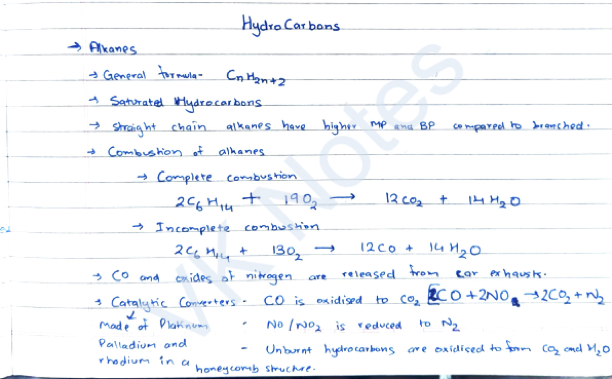 HydroCarbons
→ Alkanes
→ General formula- CnH2n+2
→ Saturated Hydrocarbons
→ straight chain alkanes have higher MP and BP compared to branched.
→ Combustion of alkanes
→ Complete combustion
2C6H14 + 19O2 → 12CO2 + 14H2O
→ Incomplete combustion
2C6H14 + 13O2 → 12CO + 14H2O
→ CO and oxides of nitrogen are released from car exhausts.
→ Catalytic Converters - CO is oxidised to CO2 [2CO + 2NO → 2CO2 + N2
Made of Platinum - NO/NO2 is reduced to N2
Palladium and - Unburnt hydrocarbons are oxidised to form CO2 and H2O
rhodium in a honeycomb structure.
VK Notes